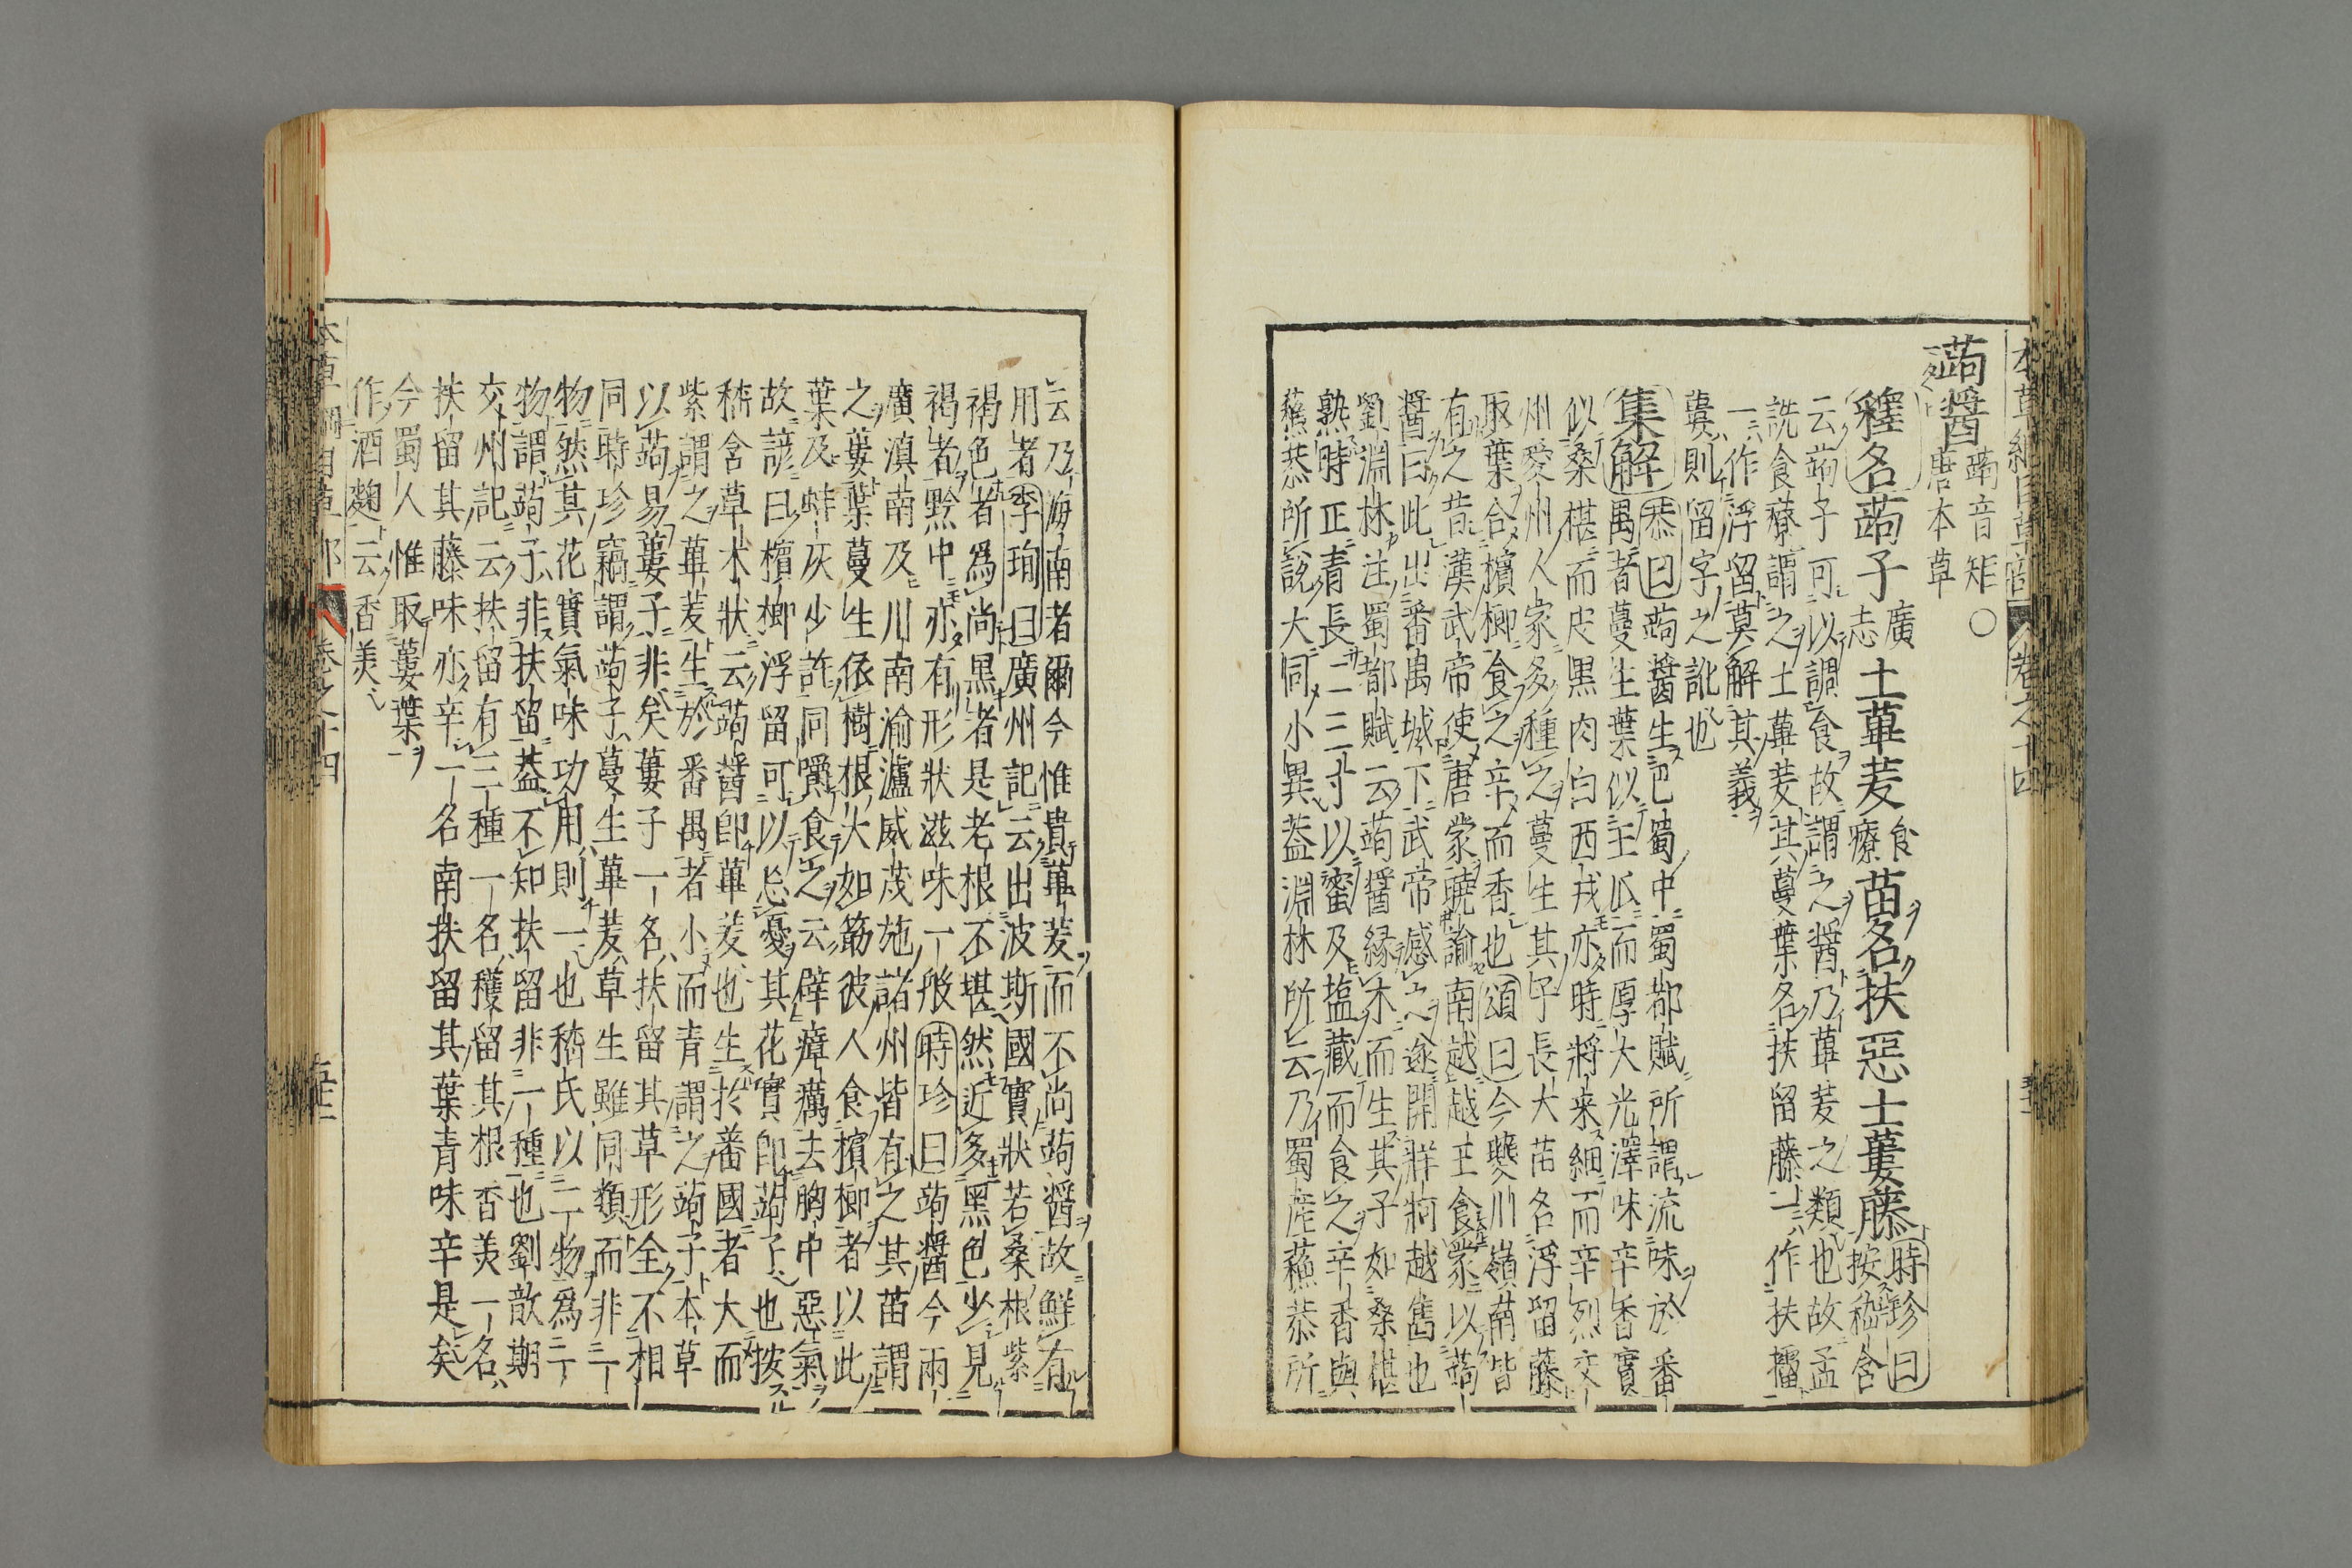 蒟醬 蒟音矩〇
唐本草
釋名蒟子廣志土蓽茇食療苗名扶惡士蔞藤時珍曰按嵇含
云蒟子可以調食故謂之醬乃蓽茇之類也故孟
詵食療謂之土蓽茇其蔓葉名扶留藤一作扶橊
一作浮留莫解其義
蔞則留字之訛也
集解恭曰蒟醬生巴蜀中蜀都賦所謂流味於番
禺者蔓生葉似王瓜而厚大光澤味辛香實
似桑椹而皮黑肉白西戎亦時將来細而辛烈交
州愛州人家多種之蔓生其子長大苗名浮留藤
取葉合檳榔食之辛而香也頌曰今夔川嶺南皆
有之昔漢武帝使唐蒙曉諭南越越王食蒙以蒟
醬曰此出番禺城下武帝感之遂開牂牁越雋也
劉淵林注蜀都賦云蒟醬緣木而生其子如桑椹
熟時正青長二三寸以蜜及塩藏而食之辛香與
蘓恭所說大同小異葢淵林所云乃蜀産蘓恭所
云乃海南者爾今惟貴蓽茇而不尚蒟醬故鮮有
用者李珣曰廣州記云出波斯國實狀若桑根紫
褐色者為尚黑者是老根不堪然近多黑色少見
褐者黔中亦有形狀滋味一般時珍曰蒟醬今兩
廣滇南及川南渝瀘威茂施諸州皆有之其苗謂
之蔞葉蔓生依樹根大如筯彼人食檳榔者以此
葉及蚌灰少許同嚼食之云辟瘴癘去胸中惡氣
故諺曰檳榔浮留可以忘憂其花實即蒟子也按
嵇含草木狀云蒟醬即蓽茇也生於蕃國者大而
紫謂之蓽茇生於番禺者小而青謂之蒟子本草
以蒟易蔞子非矣蔞子一名扶留其草形全不相
同時珍竊謂蒟子蔓生蓽茇草生雖同類而非一
物然其花實氣味功用則一也嵇氏以二物為一
物謂蒟子非扶留葢不知扶留非一種也劉歆期
交州記云扶留有三種一名穫留其根香美一名
扶留其藤味亦辛一名南扶留其葉青味辛是矣
今蜀人惟取蔞葉
作酒麴云香美